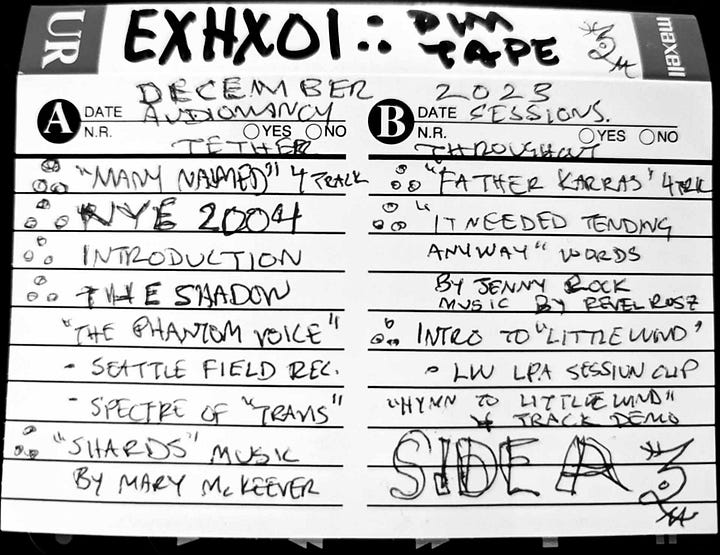 UR
EXHX01 ∴ DIM TAPE
maxell
DECEMBER 2023
A DATE AUDIOMANCY
N.R. YES NO
TETHER
"MANY NAMED" 4 TRACK
NYE 2004
INTRODUCTION
THE SHADOW
"THE PHANTOM VOICE"
- SEATTLE FIELD REC.
- SPECTRE OF "TRAVIS"
"SHARDS" MUSIC
BY MARY McKEEVER
B DATE SESSIONS.
N.R. YES NO
THROUGHOUT
"FATHER KARRAS" 4TRK
"IT NEEDED TENDING
ANYWAY" WORDS
BY JENNY ROCK
MUSIC BY REVEL ROSZ
INTRO TO "LITTLE WIND"
- LW LPA SESSION CLIP
"HYMN TO LITTLE WIND"
4 TRACK DEMO
SIDE A